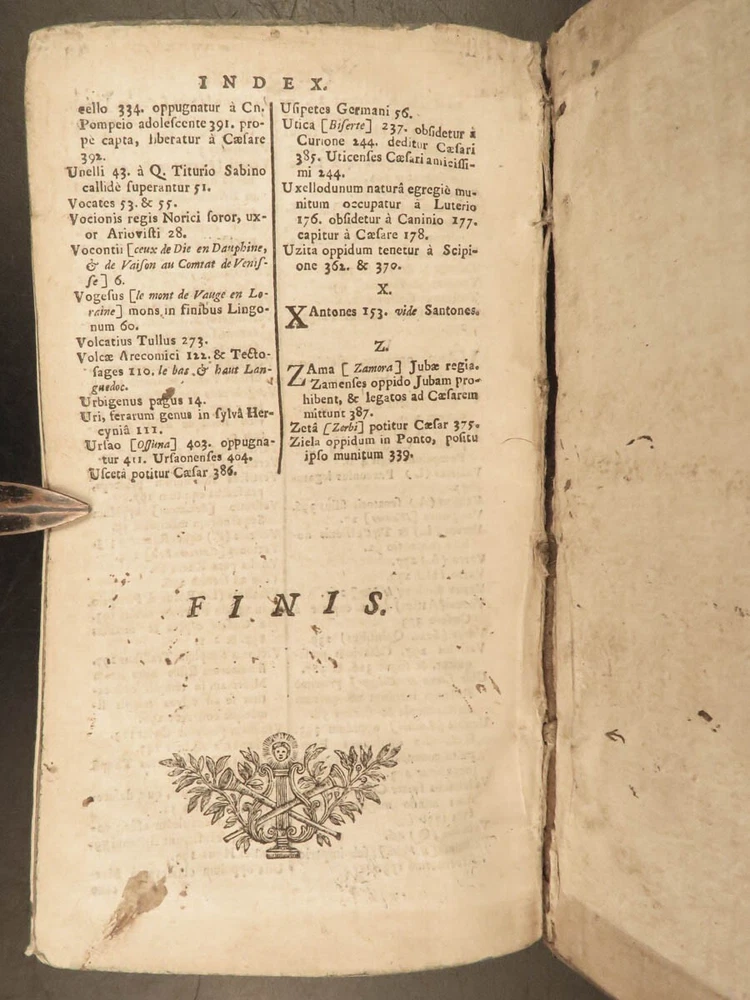 INDEX.
cello 334. oppugnatur à Cn.
Pompeio adolescente 391. pro-
pè capta, liberatur à Cæsare
392.
Unelli 43. à Q. Titurio Sabino
callidè superantur 51.
Vocates 53. & 55.
Vocionis regis Norici soror, ux-
or Ariovisti 28.
Vocontii [ceux de Die en Dauphine,
& de Vaison au Comtat de Veniss-
se] 6.
Vogesus [le mont de Vauge en Lo-
raine] mons in finibus Lingo-
num 60.
Volcatius Tullus 273.
Volcæ Arecomici 122. & Tecto-
sages 110. le bas & haut Lan-
guedoc.
Urbigenus pagus 14.
Uri, ferarum genus in sylvâ Her-
cyniâ 111.
Ursao [Ossuna] 403. oppugna-
tur 411. Ursaonenses 404.
Uscetâ potitur Cæsar 386.
Usipetes Germani 56.
Utica [Biserte] 237. obsidetur à
Curione 244. deditur Cæsari
385. Uticenses Cæsari amicissi-
mi 244.
Uxellodunum naturâ egregiè mu-
nitum occupatur à Luterio
176. obsidetur à Caninio 177.
capitur à Cæsare 178.
Uzita oppidum tenetur à Scipi-
one 362. & 370.
X.
XAntones 153. vide Santones.
Z.
ZAma [Zamora] Jubæ regia.
Zamenses oppido Jubam pro-
hibent, & legatos ad Cæsarem
mittunt 387.
Zetâ [Zerbi] potitur Cæsar 375.
Ziela oppidum in Ponto, positu
ipso munitum 339.
FINIS.